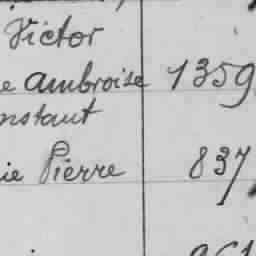 Victor
e Ambroise 1359
nstant
ie Pierre 837